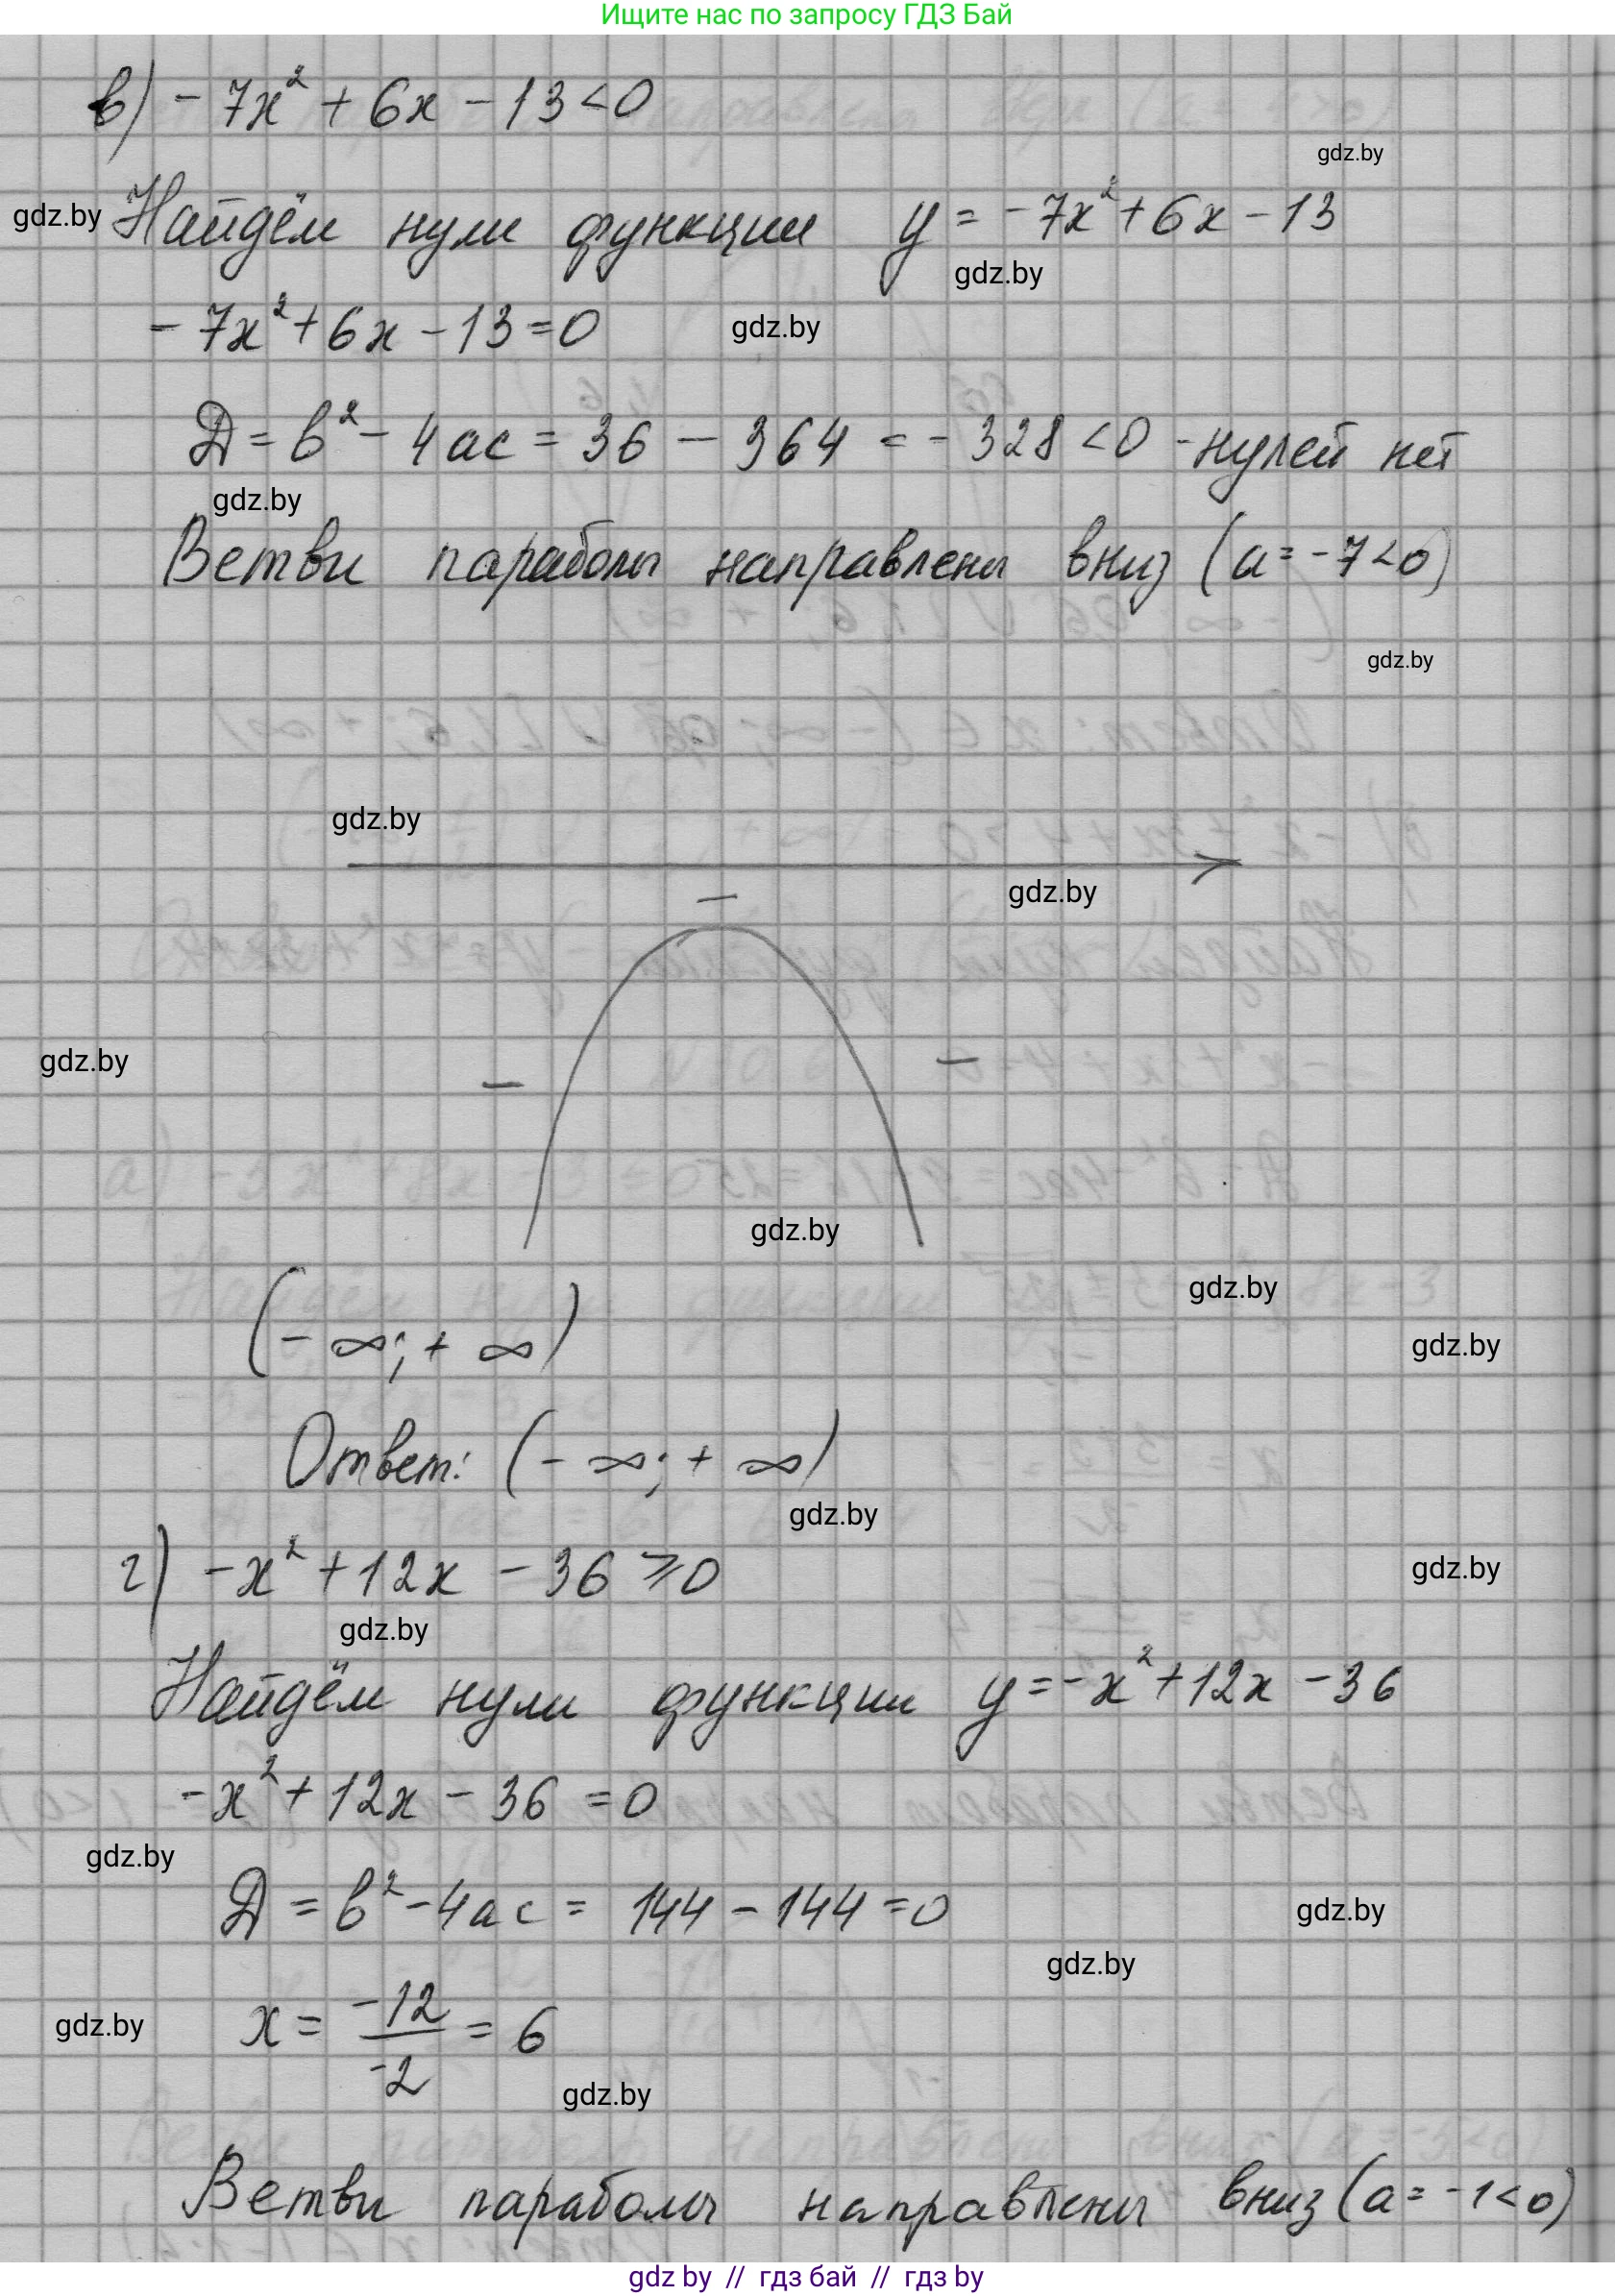 Ищите нас по запросу ГДЗ Бай
в) -7x² + 6x - 13 < 0
gdz.by
gdz.by Найдём нули функции y = -7x² + 6x - 13
gdz.by
-7x² + 6x - 13 = 0 gdz.by
Д = b² - 4ac = 36 - 364 = -328 < 0 - нулей нет
gdz.by
Ветви параболы направлены вниз (a = -7 < 0)
gdz.by
gdz.by
gdz.by
-
gdz.by - -
gdz.by
gdz.by
(-∞; +∞)
gdz.by
Ответ: (-∞; +∞)
gdz.by
г) -x² + 12x - 36 ⩾ 0 gdz.by
gdz.by
Найдём нули функции y = -x² + 12x - 36
-x² + 12x - 36 = 0
gdz.by
Д = b² - 4ac = 144 - 144 = 0 gdz.by
gdz.by
gdz.by x = -12/-2 = 6
gdz.by
Ветви параболы направлены вниз (a = -1 < 0)
gdz by // гдз бай // гдз by